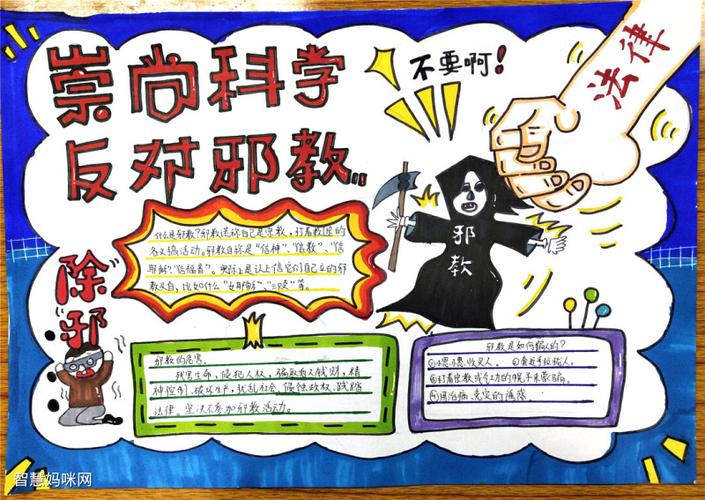 崇尚科学
反对邪教
不要啊！
法律
邪教
除邪
什么是邪教？邪教谎称自己是宗教，打着教
名义搞活动。邪教自称是“信神”、“信教”、“信
耶稣”、“信福音”。实际上是让人信它们自己立的邪
教头目，比如什么“女耶稣”、“三赎”等。
邪教的危害
残害生命，侵犯人权，骗取有人钱财，精
神控制、破坏生产，扰乱社会、侵蚀政权、践踏
法律。坚决不参加邪教活动。
邪教是如何骗人的？
①小恩小惠，收买人。 ②亲近手拉拢人。
③打着宗教或气功的幌子来蒙骗。
④用治病、免灾的
智慧妈咪网